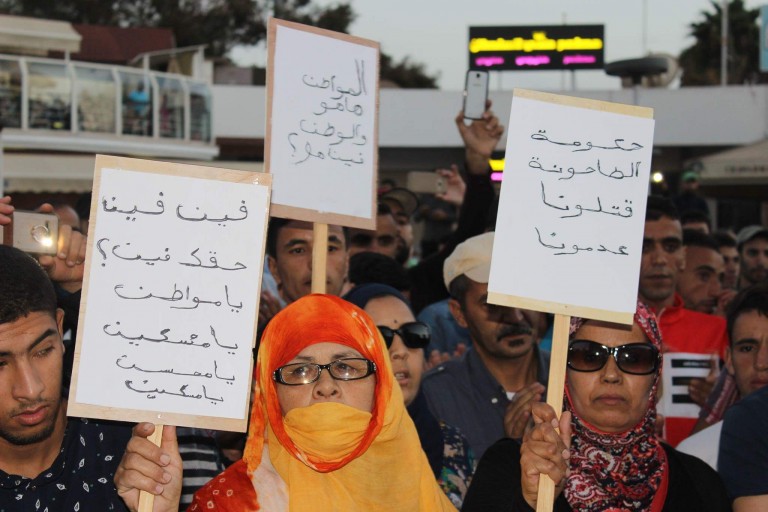 فين فينا
حقك فين؟
يامواطن
يامسكين
يامحسن
يامكين
المواطن
ماهو
والوطن
فين هو؟
حكومة
الطاحونة
قتلونا
عدمونا